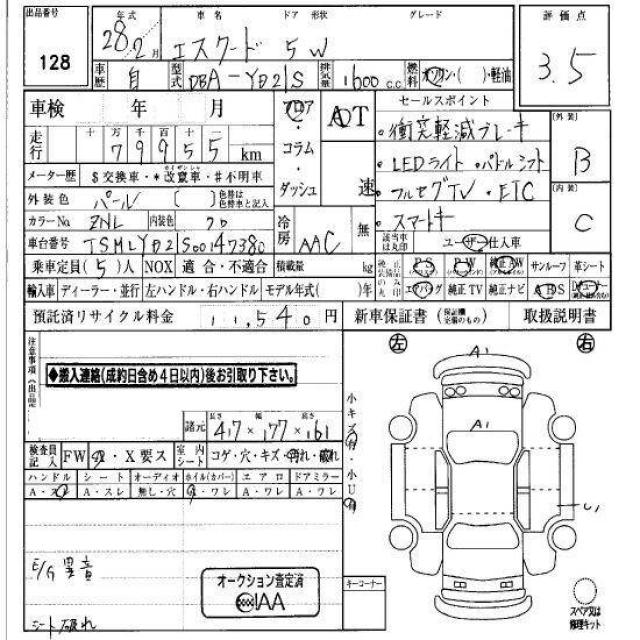 出品番号 年式 車名 ドア 形状 グレード 評価点
128 28.2月 エスクード 5 W 3.5
車歴 自 型式 DBA-YD21S 排気量 1600 c.c 燃料 ガソリン・( )・軽油
車検 年 月 フロア ADT セールスポイント [外装]
走行 十 万 千 百 十 79955 km ・コラム ・衝突軽減ブレーキ B
・ダッシュ 速 ・LEDライト ・パドルシフト
メーター歴 $交換車・*改竄車・#不明車 ・フルセグTV ・ETC [内装]
外装色 パール ( ) 色替は色替車と記入 ・スマートキー C
カラーNo. ZNL 内装色 クロ 冷房 AAC 無 該当車は丸印 ユーザー仕入車
車台番号 TSMLYD21S00147380
乗車定員(5)人 NOX 適合・不適合 積載量 kg PS PW 純正AW サンルーフ 革シート
輸入車 ディーラー・並行 左ハンドル・右ハンドル モデル年式( )年 エアバッグ 純正TV 純正ナビ ABS
預託済リサイクル料金 11,540円 新車保証書 (保証継続完備のもの) 取扱説明書
注意事項(出品店) 左 右
A1
◆搬入連絡(成約日含め4日以内)後お引取り下さい。
小キズ有
A1
諸元 長さ 417 × 幅 177 × 高さ 161
検査員記入 FW 交・X要ス 室内シート コゲ・穴・キズ・汚れ・破れ 小U有
ハンドル シート オーディオ ホイル(カバー) エアロ ドアミラー
A・スレ A・スレ 無し・穴 キズ・ワレ A・ワレ A・ワレ
E/G 異音
オークション査定済
IAA
キーコーナー
シート破れ
スペア又は修理キット